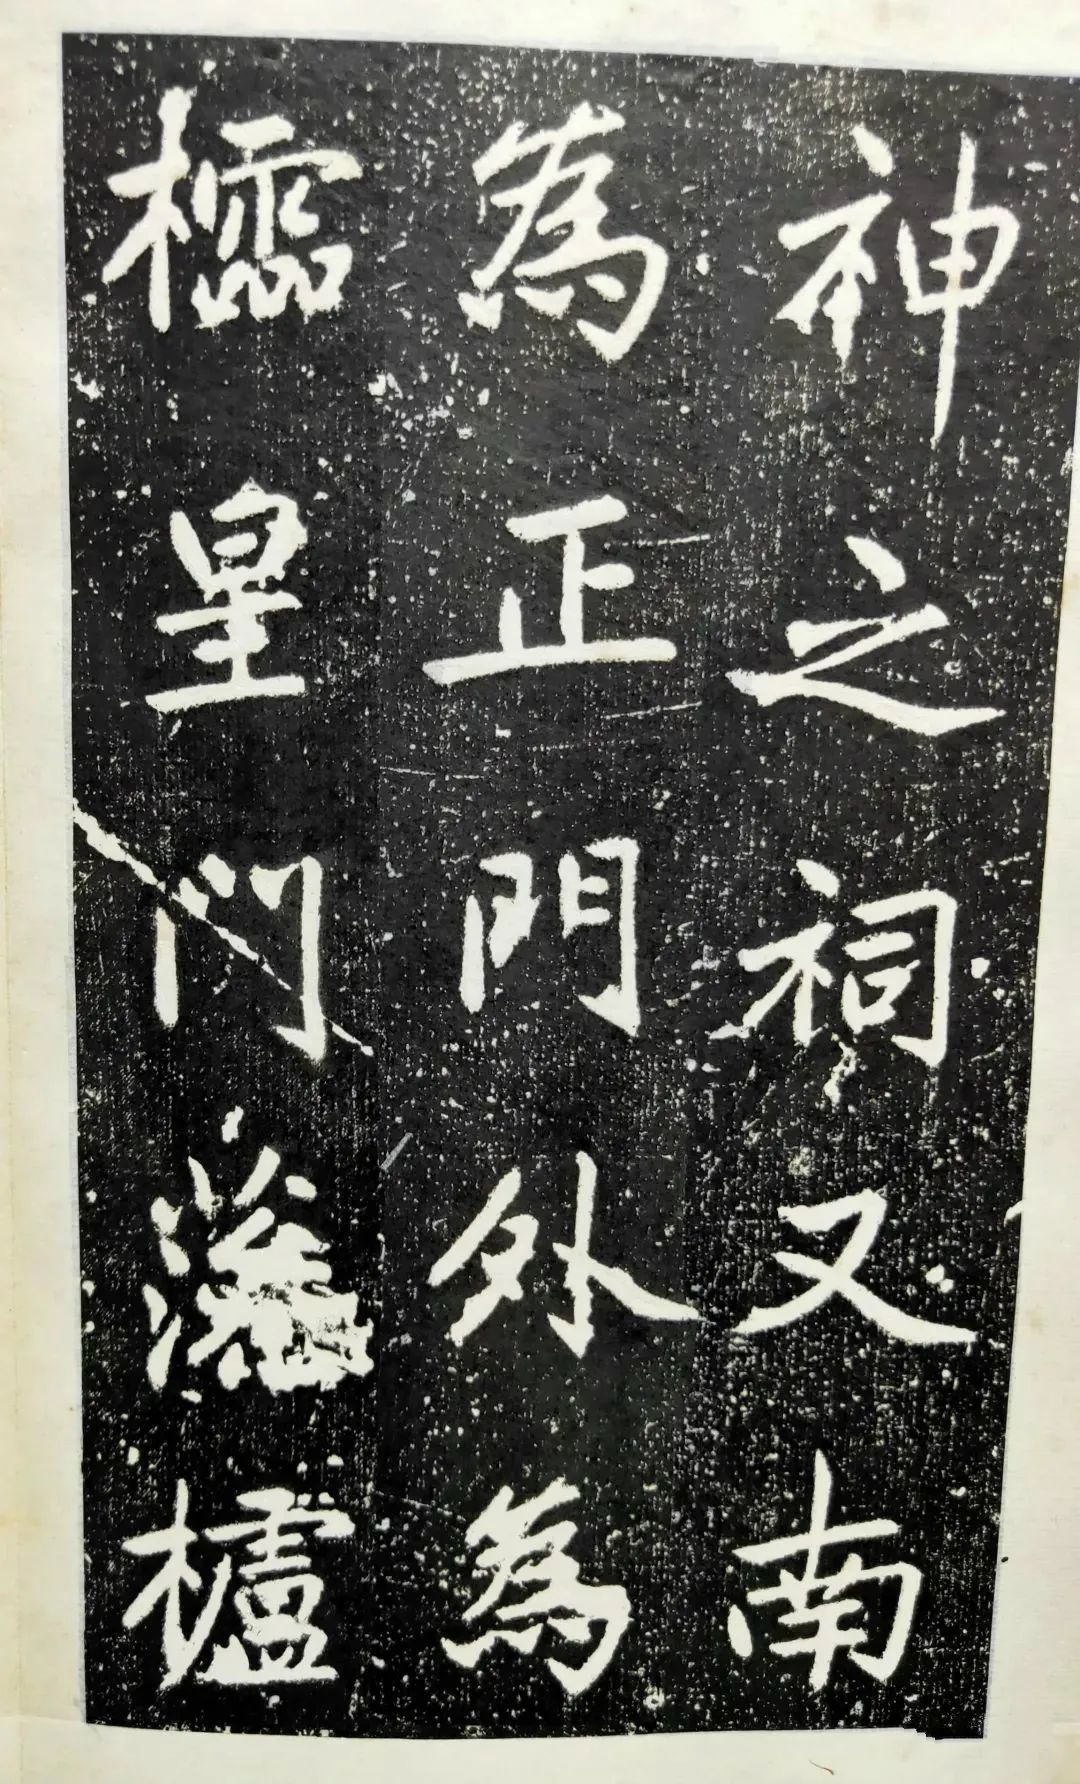 神之祠又南
為正門外為
櫺星門藩櫨